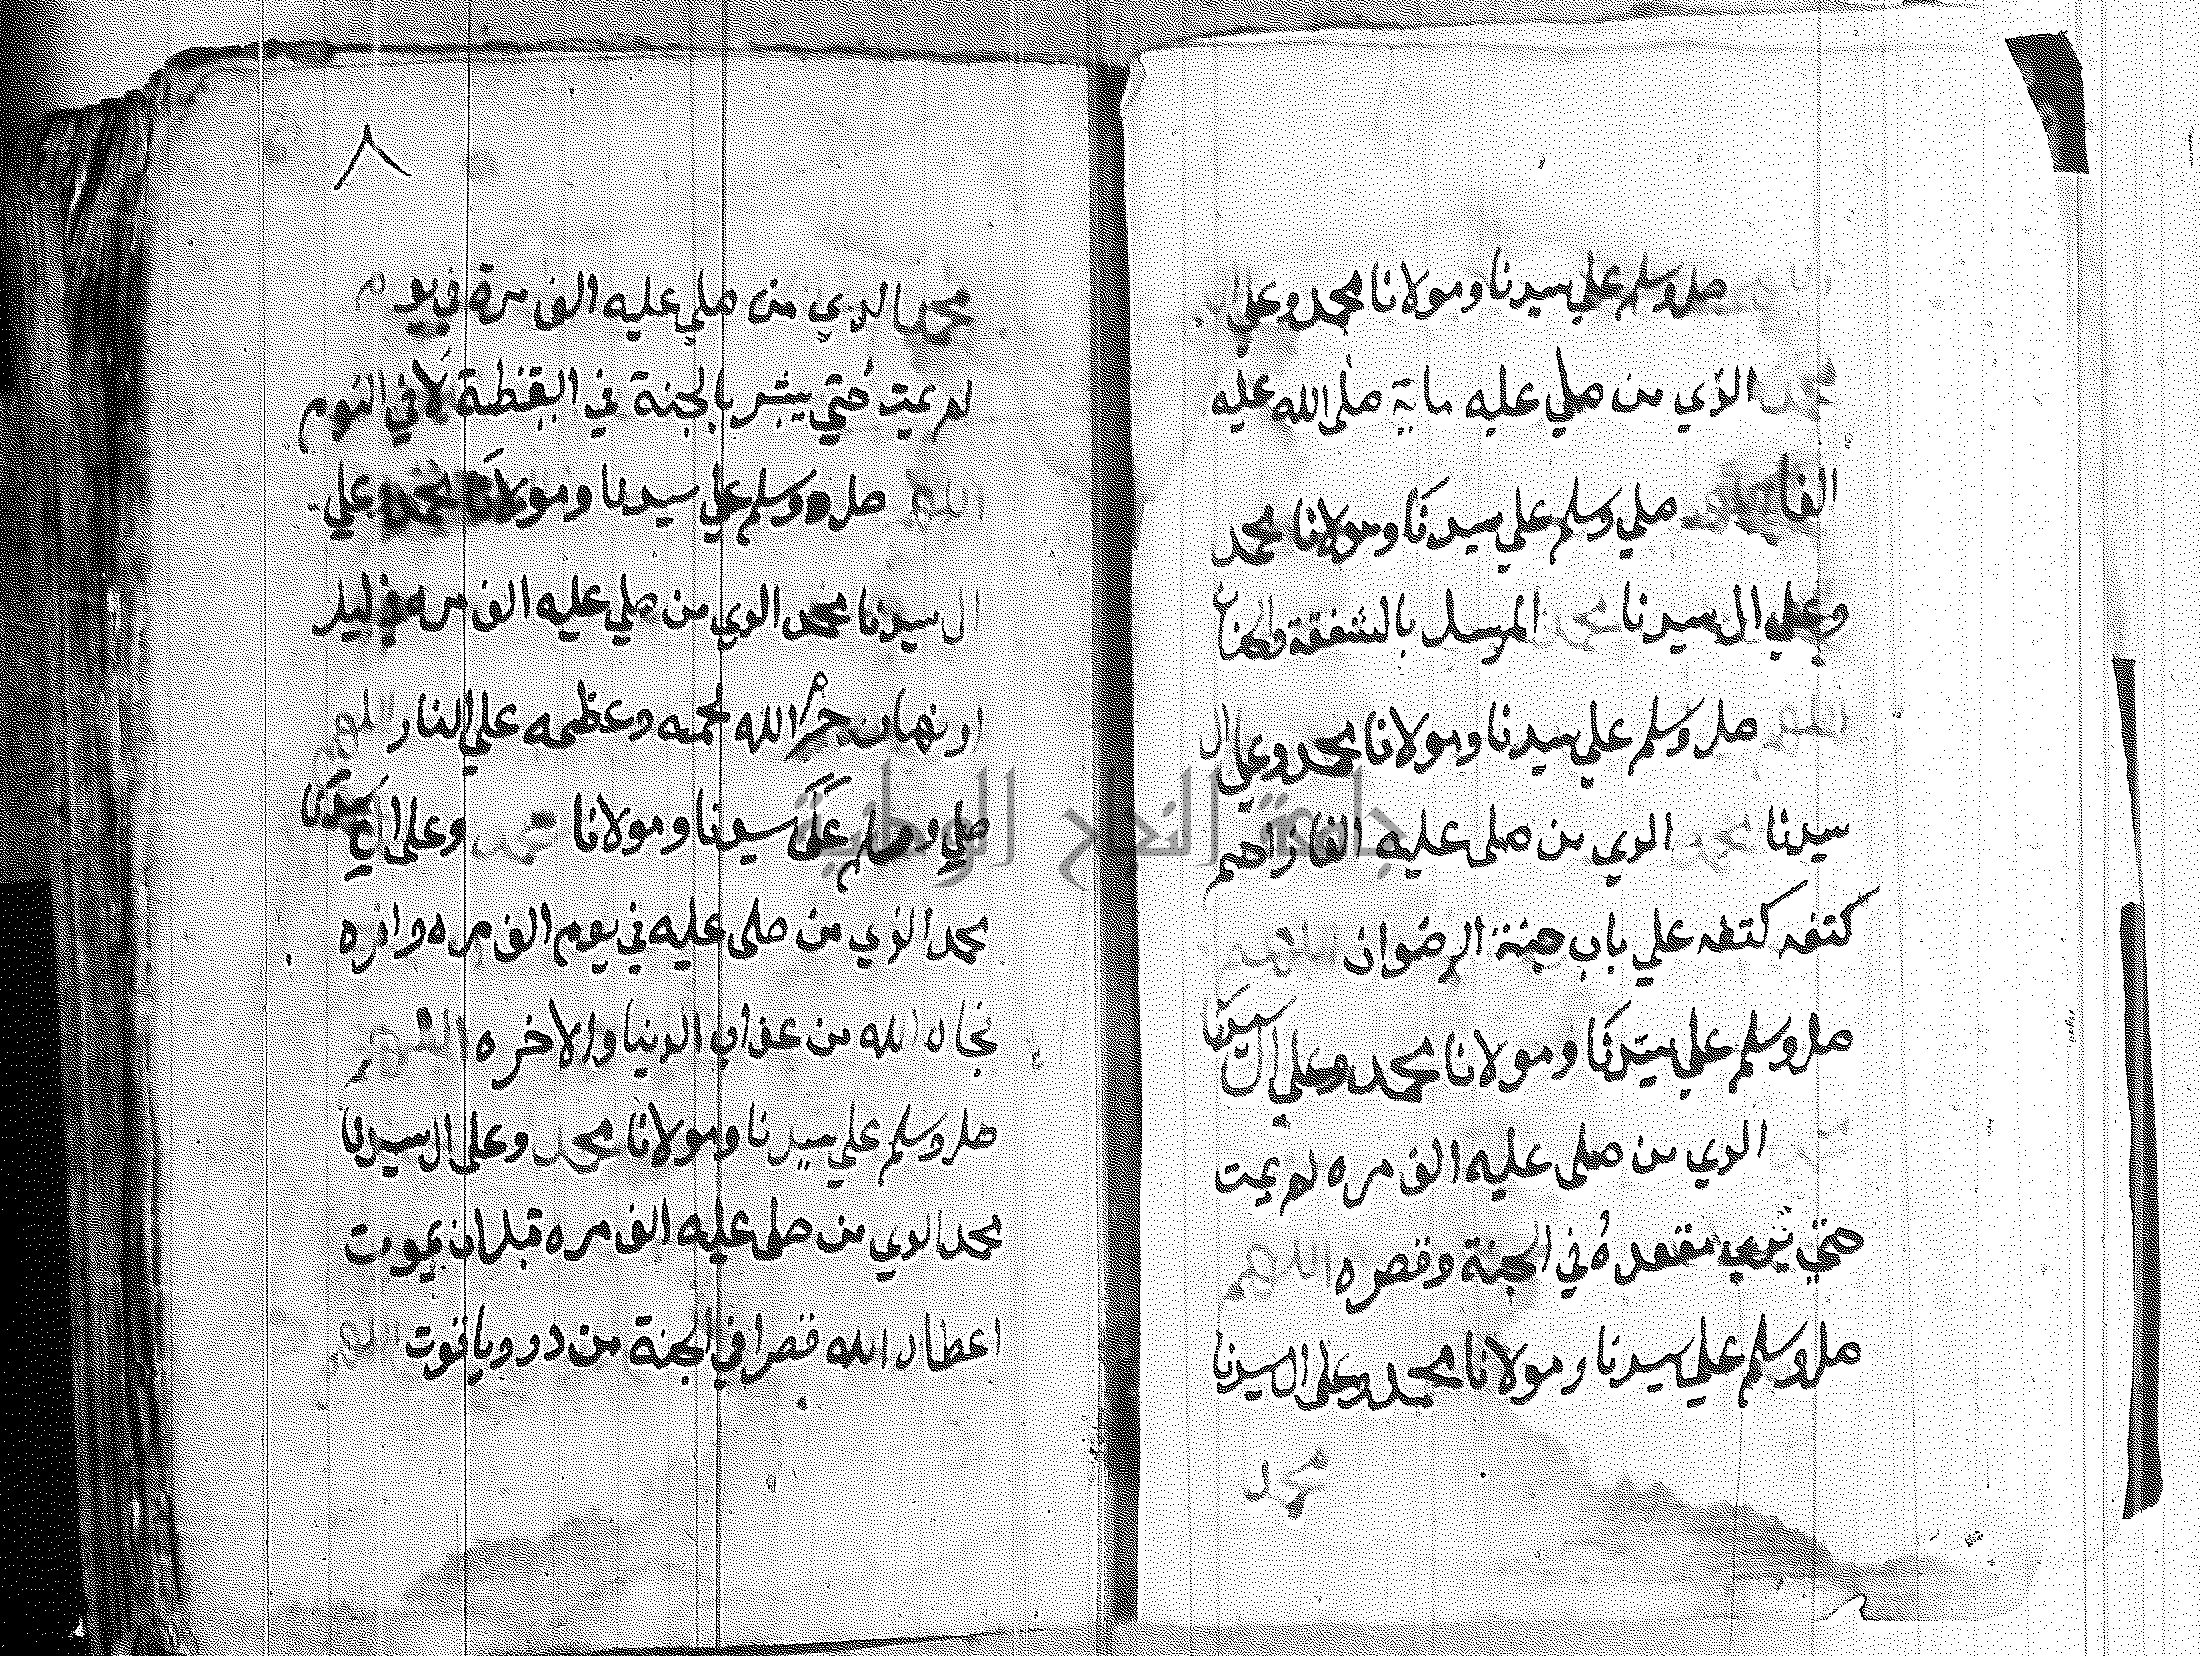 اللهم صل وسلم علي سيدنا ومولانا محمد وعلي ال
محمد الذي من صلي عليه ماية صلي الله عليه
الفا اللهم صلي وسلم علي سيدنا ومولانا محمد
وعلي ال سيدنا محمد المرسل بالشفقة والحنان
اللهم صل وسلم علي سيدنا ومولانا محمد وعلي ال
سيدنا محمد الذي من صلي عليه الفا زاحم
كتفه كتفه علي باب جنة الرضوان اللهم
صل وسلم علي سيدنا ومولانا محمد وعلي ال سيدنا
محمد الذي من صلي عليه الف مره لم يمت
حتي يري مقعده في الجنة وقصره اللهم
صل وسلم علي سيدنا ومولانا محمد وعلي ال سيدنا
محمد
٨
محمد الذي من صلي عليه الف مرة في يوم
لم يمت حتي يبشر بالجنة في اليقظة لا في النوم
اللهم صل وسلم علي سيدنا ومولانا محمد وعلي
ال سيدنا محمد الذي من صلي عليه الف مره في ليل
او نهار حرم الله لحمه وعظمه علي النار اللهم
صلي وسلم علي سيدنا ومولانا محمد وعلي ال سيدنا
محمد الذي من صلي عليه في يوم الف مره وامره
نجاه الله من عذاب الدنيا والاخره اللهم
صل وسلم علي سيدنا ومولانا محمد وعلي ال سيدنا
محمد الذي من صلي عليه الف مره قبل ان يموت
اعطاه الله قصرا في الجنة من در وياقوت اللهم
جامعة النجاح الوطنية